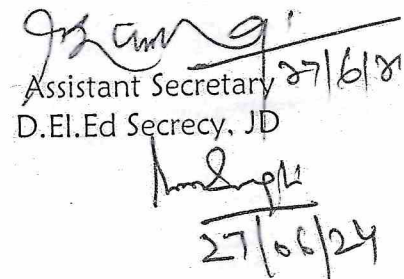 Assistant Secretary 27/6/24
D.El.Ed Secrecy, JD
27/06/24